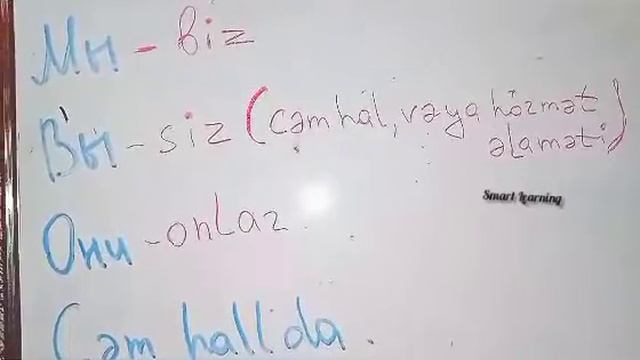 Мы - biz
Вы - siz (cəm hal, vəya hörmət
əlaməti)
Smart Learning
Они - onlar
Cəm hallda.